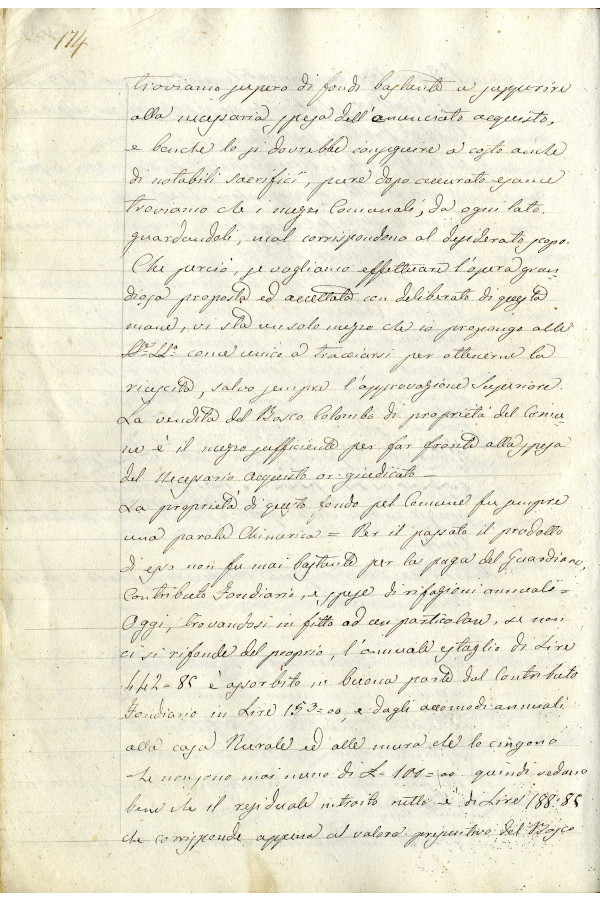 174
troviamo supero di fondi bastante a sopperire
alla necessaria spesa dell'annunciato acquisto,
e benche lo si dovrebbe conseguire a costo anche
di notabili sacrificî, pure dopo accurato esame
troviamo che i mezzi Comunali, da ogni lato
guardandoli, mal corrispondono al desiderato scopo.
Che perciò, se vogliamo effettuare l'opera gran-
diosa proposta ed accettata con deliberato di questa
mane, vi stà un solo mezzo che io propongo alle
LL.e come unico a tracciarsi per ottenerne la
riescita, salvo sempre l'approvazione Superiore.
La vendita del Bosco Colomba di proprietà del Comu-
ne è il mezzo sufficiente per far fronte alla spesa
del necessario acquisto or giudicato —
La proprietà di questo fondo pel Comune fu sempre
una parola Chimerica = Per il passato il prodotto
di esso non fu mai bastante per la paga del Guardiano,
Contributo Fondiario, e spese di rifazioni annuali =
Oggi, trovandosi in fitto ad un particolare, se non
ci si rifonde del proprio, l'annuale estaglio di Lire
442=85 è assorbito in buona parte dal Contributo
Fondiario in Lire 153=00, e dagli accomodi annuali
alla casa Rurale ed alle mura che lo cingono
che non sono mai meno di L= 101=00 quindi vedono
bene che il residuale introito netto è di Lire 188.85
che corrisponde appena al valore del Bosco